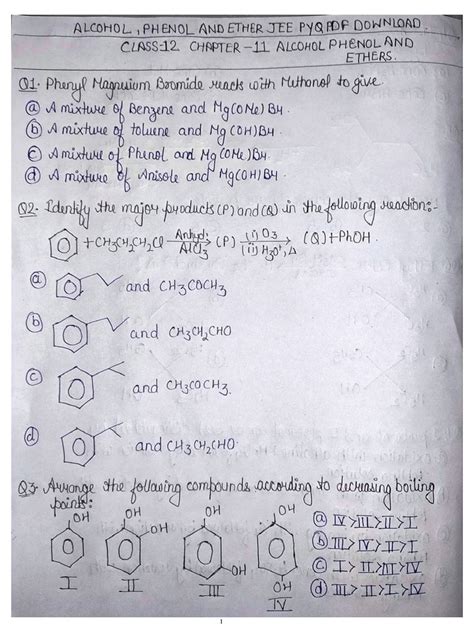 ALCOHOL, PHENOL AND ETHER JEE PYQ PDF DOWNLOAD.
CLASS-12 CHAPTER-11 ALCOHOL PHENOL AND
ETHERS.
Q1. Phenyl Magnuium Bromide reacts with Methonol to give
(a) A mixture of Benzene and Mg(OMe)Br.
(b) A mixture of toluene and Mg(OH)Br.
(c) A mixture of Phenol and Mg(OMe)Br.
(d) A mixture of Anisole and Mg(OH)Br.
Q2. Identify the major products (P) and (Q) in the following reaction:-
+ CH3CH2CH2Cl Anhyd. AlCl3 (P) (i) O3 (ii) H3O+, Δ (Q) + PhOH.
(a) and CH3COCH3
(b) and CH3CH2CHO
(c) and CH3COCH3.
(d) and CH3CH2CHO.
Q3. Arrange the following compounds according to decreasing boiling
points:
OH OH OH OH
OH OH
I II III IV
(a) IV>III>II>I
(b) III>IV>II>I
(c) I>II>III>IV
(d) III>I>II>IV
1